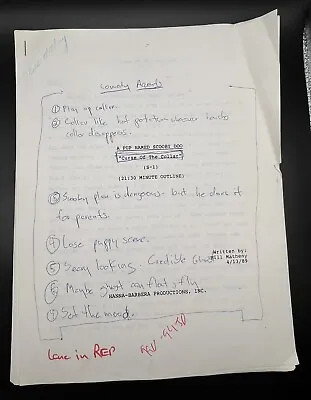 Comedy Aspects
① Play up collar.
② Collar like hot potato - whoever
collar disappears.
A PUP NAMED SCOOBY DOO
"Curse Of The Collar"
(S-1)
(21:30 MINUTE OUTLINE)
③ Scooby plan is dangerous - but he does it
for parents.
④ Lose puppy scene.
⑤ Scary looking. Credible Ghost
Written by:
Bill Matheny
4/13/89
⑥ Maybe short
HANNA-BARBERA PRODUCTIONS, INC.
Set the mood.
Lane in RED